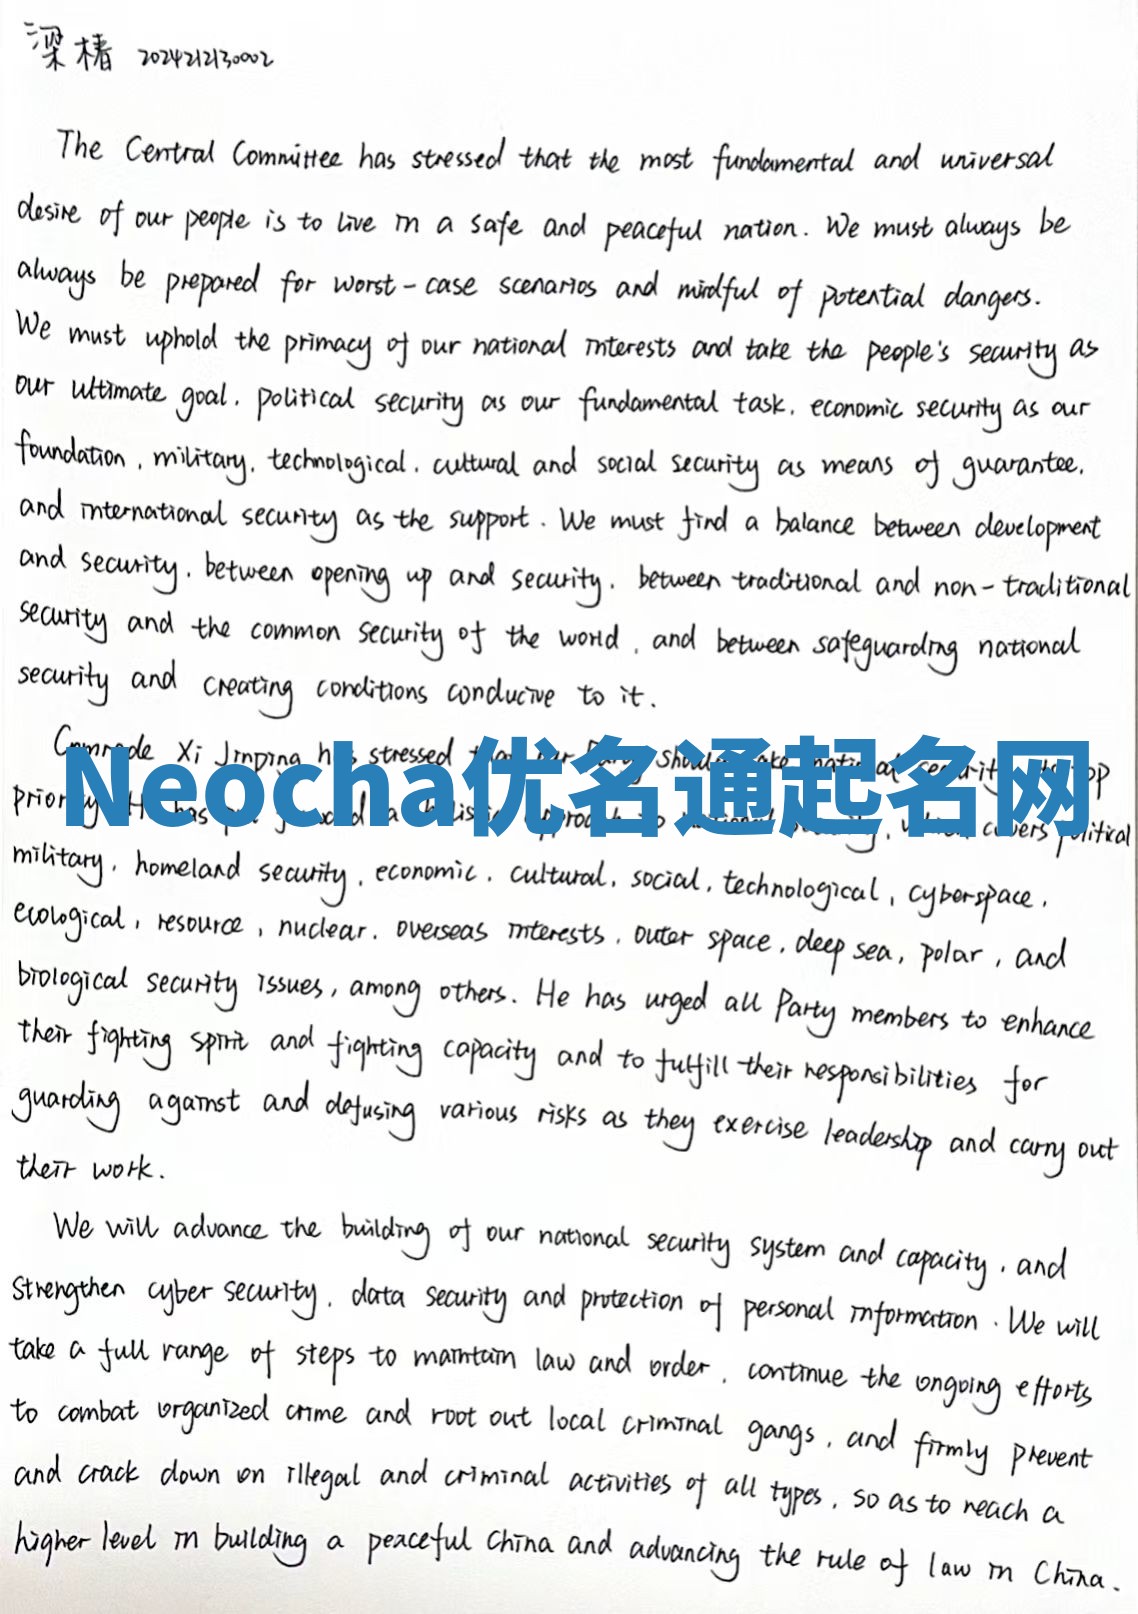 梁椿 2024212130002
The Central Committee has stressed that the most fundamental and universal
desire of our people is to live in a safe and peaceful nation. We must always be
always be prepared for worst-case scenarios and mindful of potential dangers.
We must uphold the primacy of our national interests and take the people's security as
our ultimate goal, political security as our fundamental task, economic security as our
foundation, military, technological, cultural and social security as means of guarantee,
and international security as the support. We must find a balance between development
and security, between opening up and security, between traditional and non-traditional
security and the common security of the world, and between safeguarding national
security and creating conditions conducive to it.
Comrade Xi Jinping has stressed should national security top
Neocha优名通起名网
priority. has covers political
military, homeland security, economic, cultural, social, technological, cyberspace,
ecological, resource, nuclear, overseas interests, outer space, deep sea, polar, and
biological security issues, among others. He has urged all Party members to enhance
their fighting spirit and fighting capacity and to fulfill their responsibilities for
guarding against and defusing various risks as they exercise leadership and carry out
their work.
We will advance the building of our national security system and capacity, and
strengthen cyber security, data security and protection of personal information. We will
take a full range of steps to maintain law and order, continue the ongoing efforts
to combat organized crime and root out local criminal gangs, and firmly prevent
and crack down on illegal and criminal activities of all types, so as to reach a
higher level in building a peaceful China and advancing the rule of law in China.